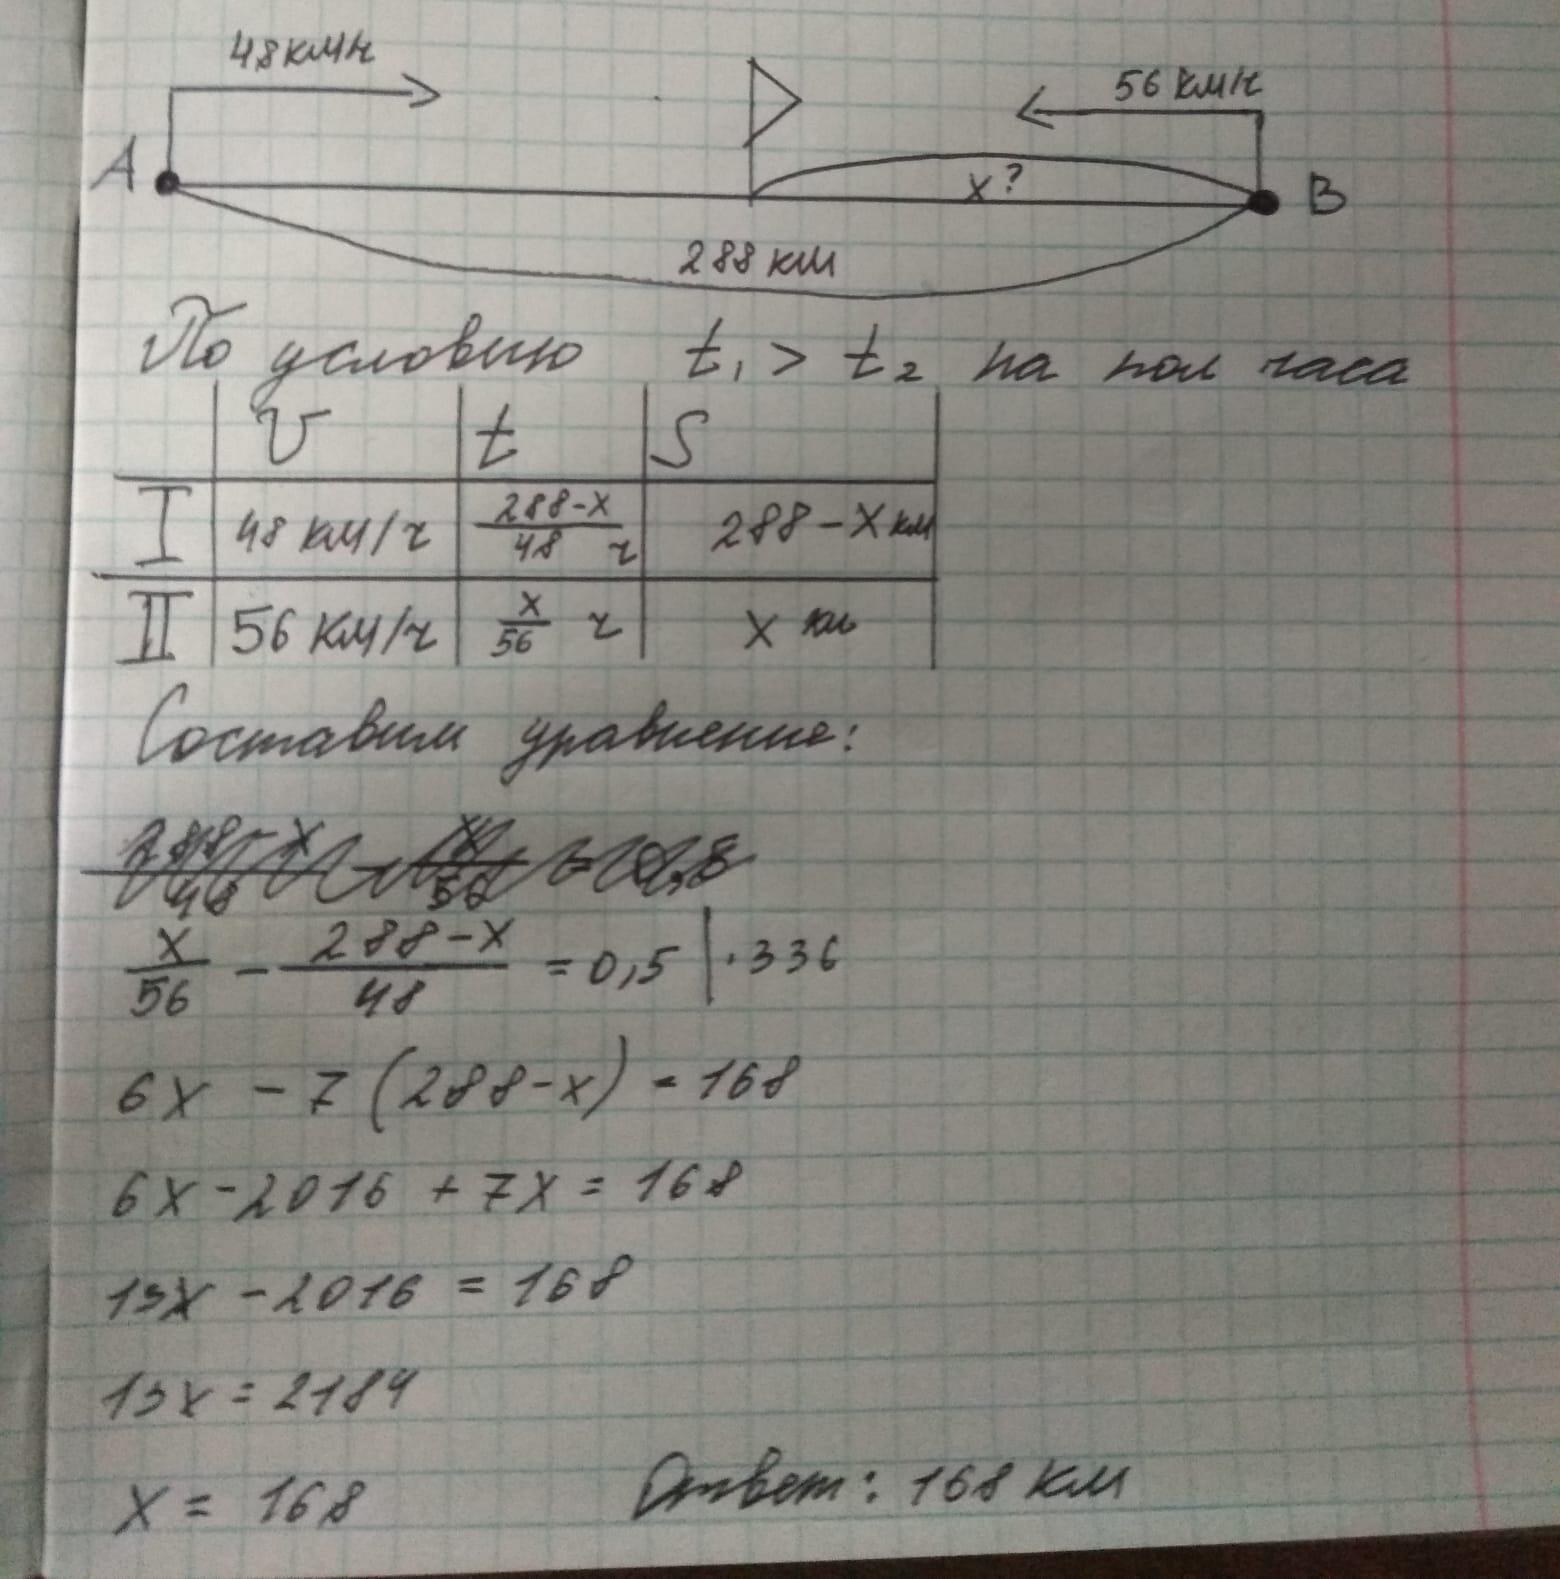 48 км/ч
56 км/ч
A
x?
B
288 км
По условию t₁ > t₂ на пол часа
v t S
I 48 км/ч (288-x)/48 ч 288-x км
II 56 км/ч x/56 ч x км
Составим уравнение:
x/56 - (288-x)/48 = 0,5 | ·336
6x - 7(288-x) = 168
6x - 2016 + 7x = 168
13x - 2016 = 168
13x = 2184
x = 168
Ответ: 168 км